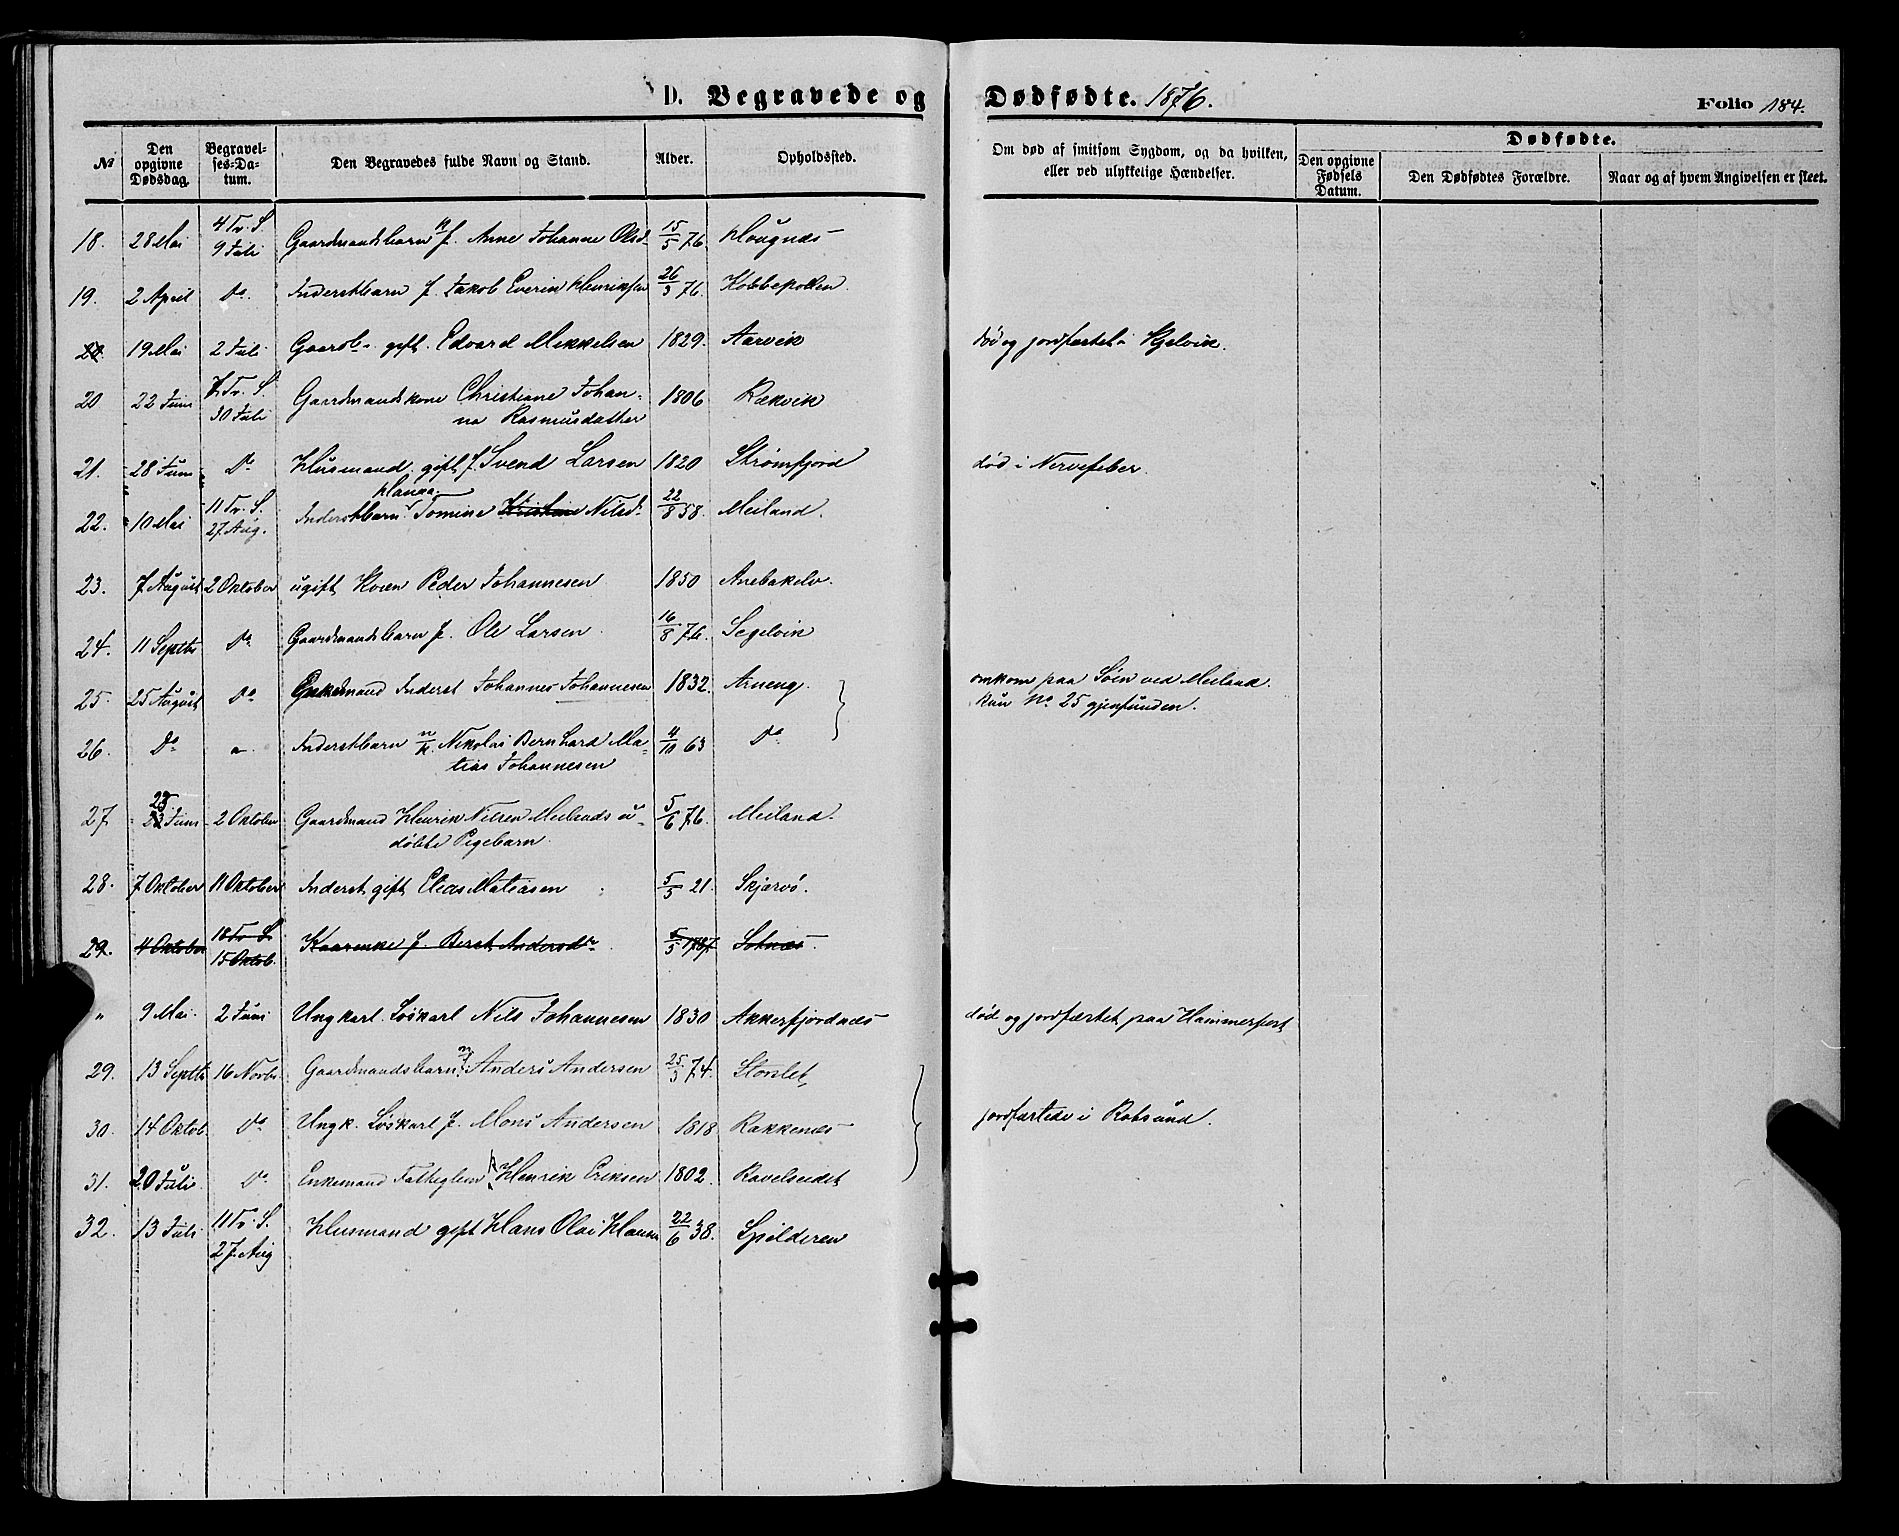 D. Begravede og Dødfødte. 1876. Folio 184.
№ Den opgivne Dødsdag. Begravelses-Datum. Den Begravedes fulde Navn og Stand. Alder. Opholdsted. Om død af smitsom Sygdom, og da hvilken, eller ved ulykkelige Hændelser. Dødfødte. Den opgivne Fødsels Datum. Den Dødfødtes Forældre. Naar og af hvem Angivelsen er skeet.
18. 28 Mai 4 Tr. S. 9 Juli Gaardmandsbarn f. Anne Johanne Olsd. 15/5 76. Hougnæs
19. 2 April Do. Inderstbarn f. Jakob Everin Henriksen 26/3 76. Kobbepollen
19 Mai 2 Juli Gaardb. gift. Edvard Mikkelsen 1829. Aarvik død og jordfæstet i Kjelvik.
20 22 Juni 7 Tr. S. 30 Juli Gaardmandskone Christiane Johan-
na Rasmusdatter 1806 Rækvik
21. 28 Juni Do Husmand gift f. Svend Larsen 1820 Strømfjord død i Nervefeber.
Hanna
22. 10 Mai 11 Tr. S. 27 Aug. Inderstbarn Tomine Kristine Nilsd. 22/8 58. Meiland.
23. 7 August 2 Oktober ugift Kvæn Peder Johannesen 1850 Anebakelv.
24. 11 Septbr Do Gaardmandsbarn f. Ole Larsen. 16/8 76. Segelvik
25. 25 August Do Enkemand Inderst Johannes Johannesen 1832. Arneng. omkom paa Søen ved Meiland.
kun No 25 gjenfunden.
26. Do Inderstbarn n/k. Nikolai Bernhard Ma-
tias Johannesen 4/10 63 Do
27. 23 Juni 2 Oktober Gaardmand Henrik Nilsen Meilands u-
døbte Pigebarn. 5/6 76. Meiland.
28. 7 Oktober 11 Oktober Inderst gift Elias Matiasen 5/5 21. Skjærvö.
29. 4 Oktober 18 Tr. S. 15 Oktob. Kaarenke f. Berit Andersdtr. 5/5 1787 Sotnæs.
" 9 Mai. 2 Juni Ungkarl Löskarl Nils Johannesen 1830 Akkerfjordnæs død og jordfæstet paa Hammerfest
29. 13 Septbr 16 Novbr. Gaardmandsbarn Anders Andersen 25/3 74. Storslet
30. 14 Oktob. Do Ungk. Löskarl f. Mons Andersen 1818 Rakkenæs jordfæstede i Rotsund.
31. 20 Juli. Do Enkemand Fattiglem Henrik Eriksen 1802. Ravelseidet
32. 13 Juli 11 Tr. S. 27 Aug Husmand gift Hans Olai Hansen 22/6 38. Spilderen